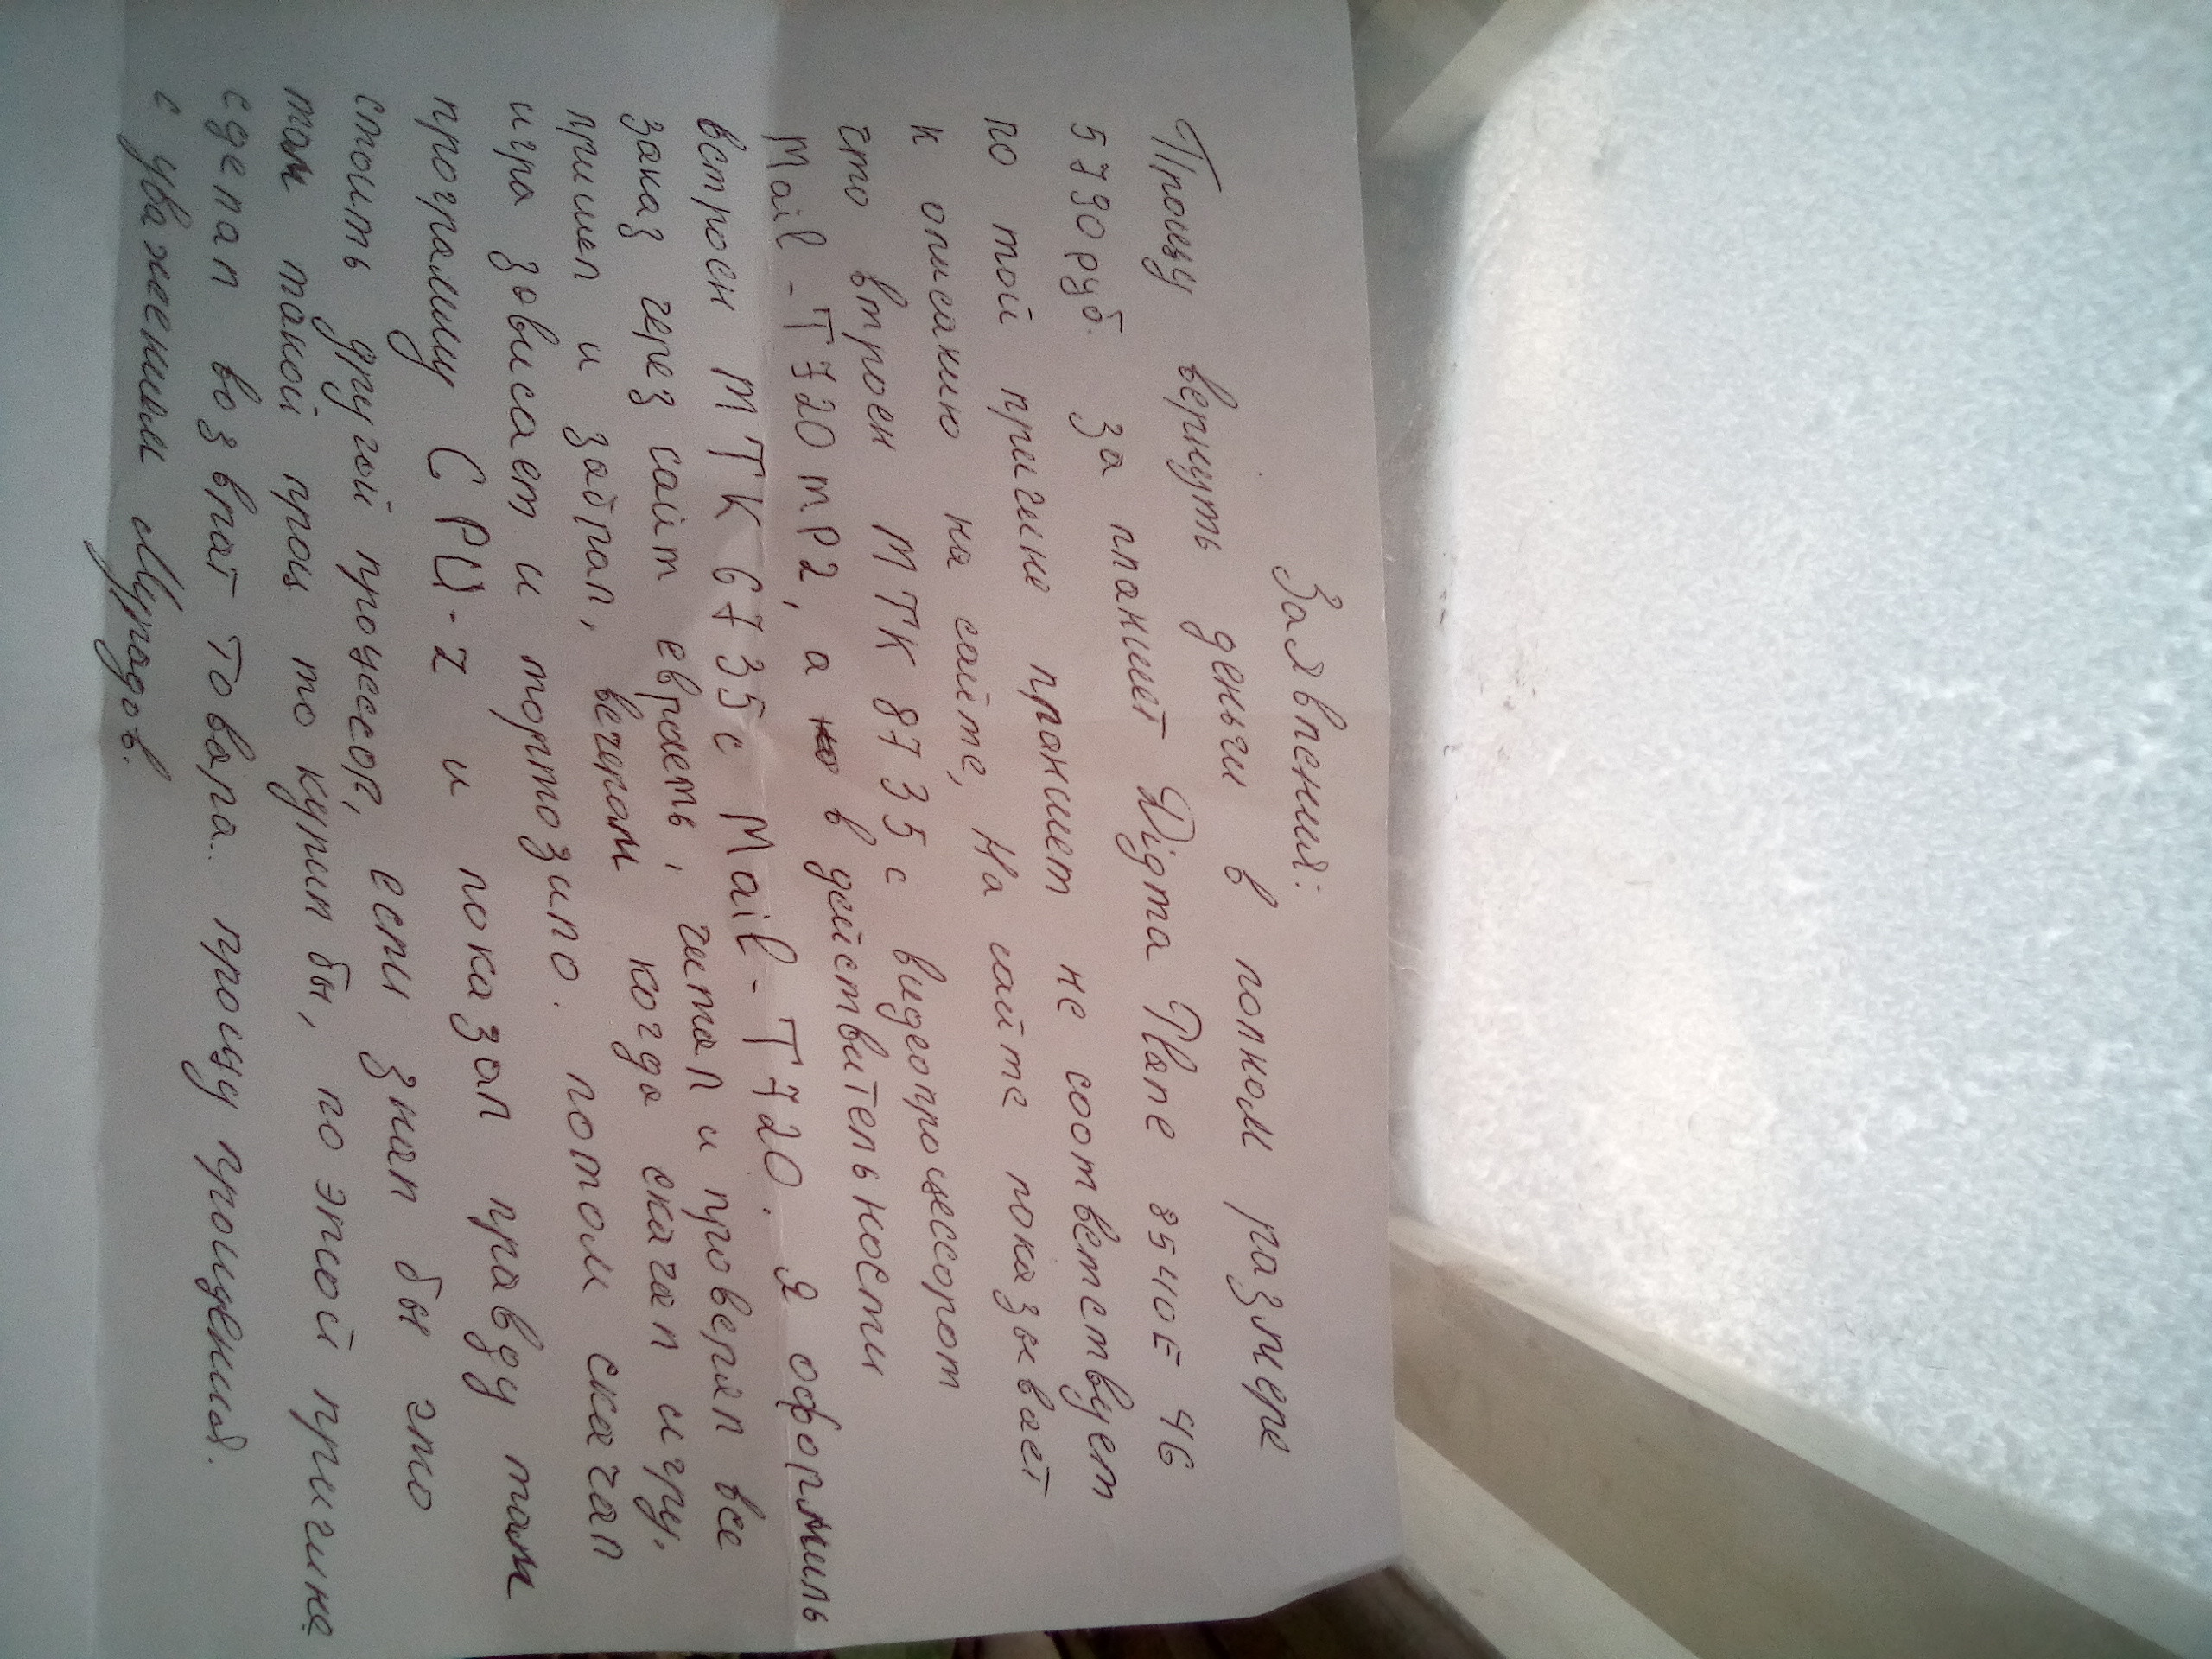 Заявления:
Прошу вернуть деньги в полном размере
5790 руб. за планшет Digma Plane 8540E 4G
по той причине планшет не соответствует
к описанию на сайте, на сайте показывает
что втроен МТК 8735 с видеопроцессорот
Mail-T720 mP2, а в действительности
встроен МТК 6735 с Mail-T720. Я оформиль
заказ через сайт евросеть, читал и проверял все
пришел и забрал, вечером когда скачал игру,
игра зависает и тормозило. потом скачал
программу CPU-z и показал правду там
стоить другой процессор, если знал бы это
там такой проц. то купил бы, по этой причине
сделал возврат товара. прошу прощения.
с уважением Муродов.